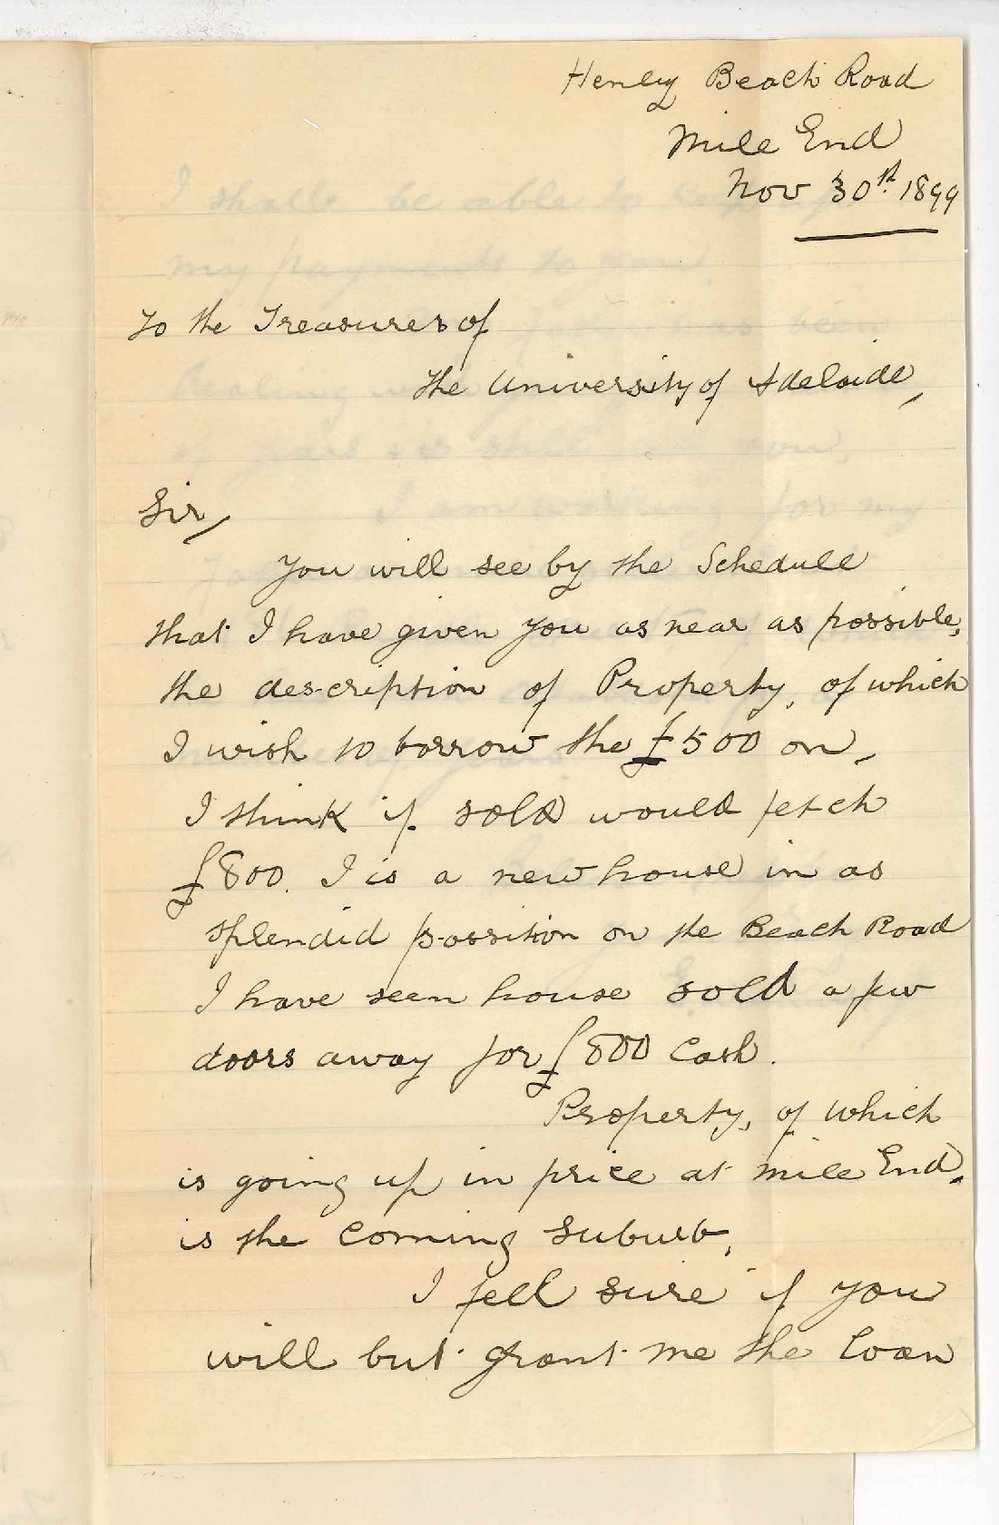 Henley Beach Road
Mile End
Nov 30st. 1899
To the Treasurer of
the University of Adelaide,
Sir,
You will see by the Schedule
that I have given you as near as possible,
the description of Property, of which
I wish to borrow the £500 on,
I think if sold would fetch
£800. I is a new house in as
splendid possition on the Beach Road
I have seen house sold a few
doors away for £800 Cash.
Property, of which
is going up in price at Mile End,
is the Coming Suburb,
I feel sure if you
will but grant me the loan